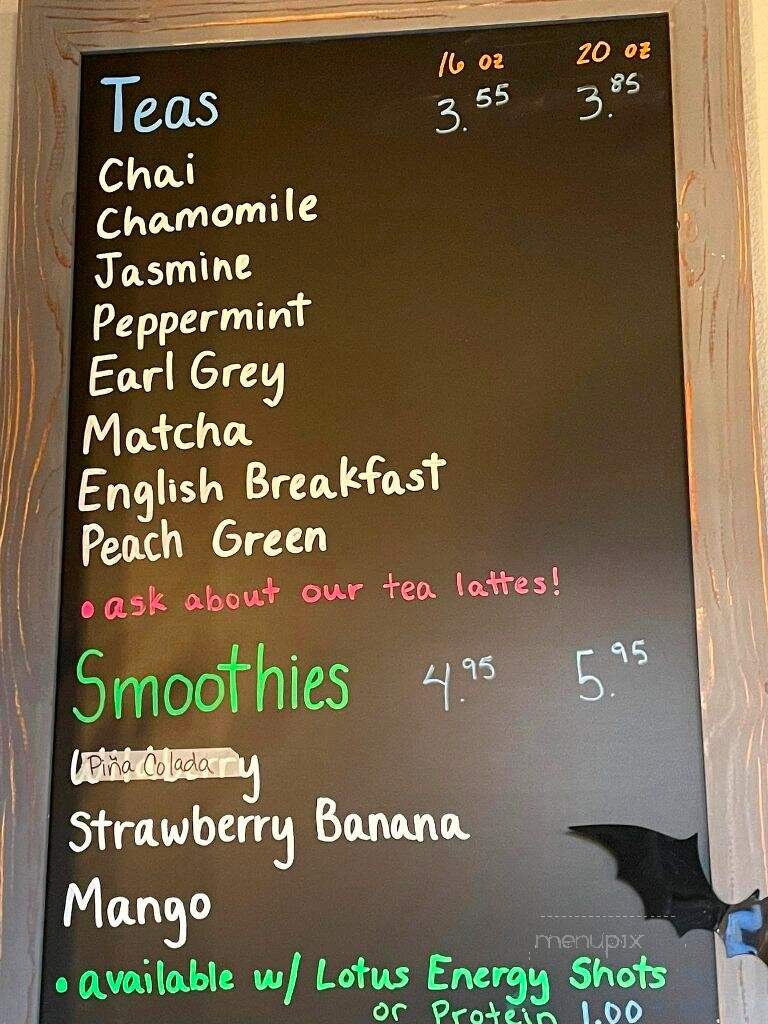 16 oz 20 oz
Teas 3.55 3.85
Chai
Chamomile
Jasmine
Peppermint
Earl Grey
Matcha
English Breakfast
Peach Green
• ask about our tea lattes!
Smoothies 4.95 5.95
Piña Colada
Strawberry Banana
Mango
menupix
• available w/ Lotus Energy Shots
or Protein 1.00